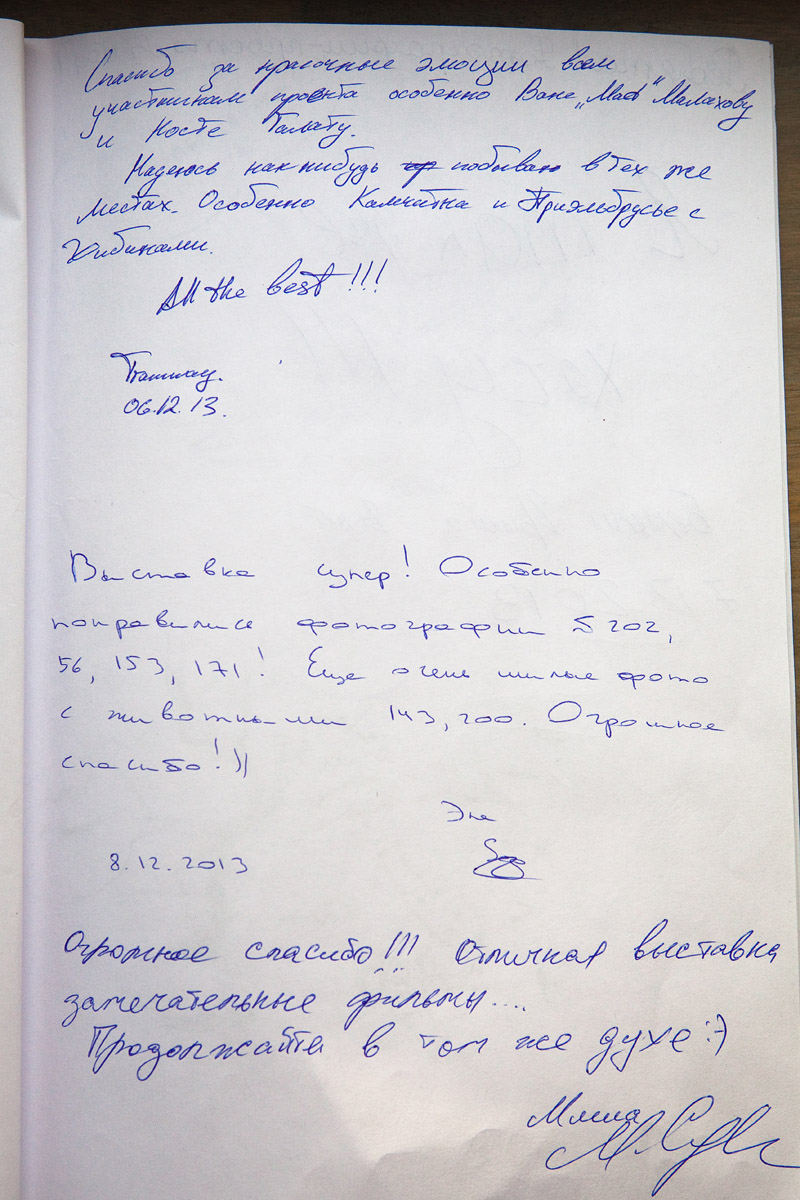 Спасиб за красочные эмоции всем
участникам проекта особенно Ване „Mad“ Малахову
и Косте Галату.
Надеюсь как нибудь побываю в тех же
местах. Особенно Камчатка и Приэльбрусье с
Хибинами.
All the best!!!
06.12.13.
Выставка супер! Особенно
понравились фотографии 202,
56, 153, 171! Еще очень милые фото
с животными 143, 200. Огромное
спасибо!))
8.12.2013
Огромное спасибо!!! Отличная выставка
замечательные фильмы....
Продолжайте в том же духе :)